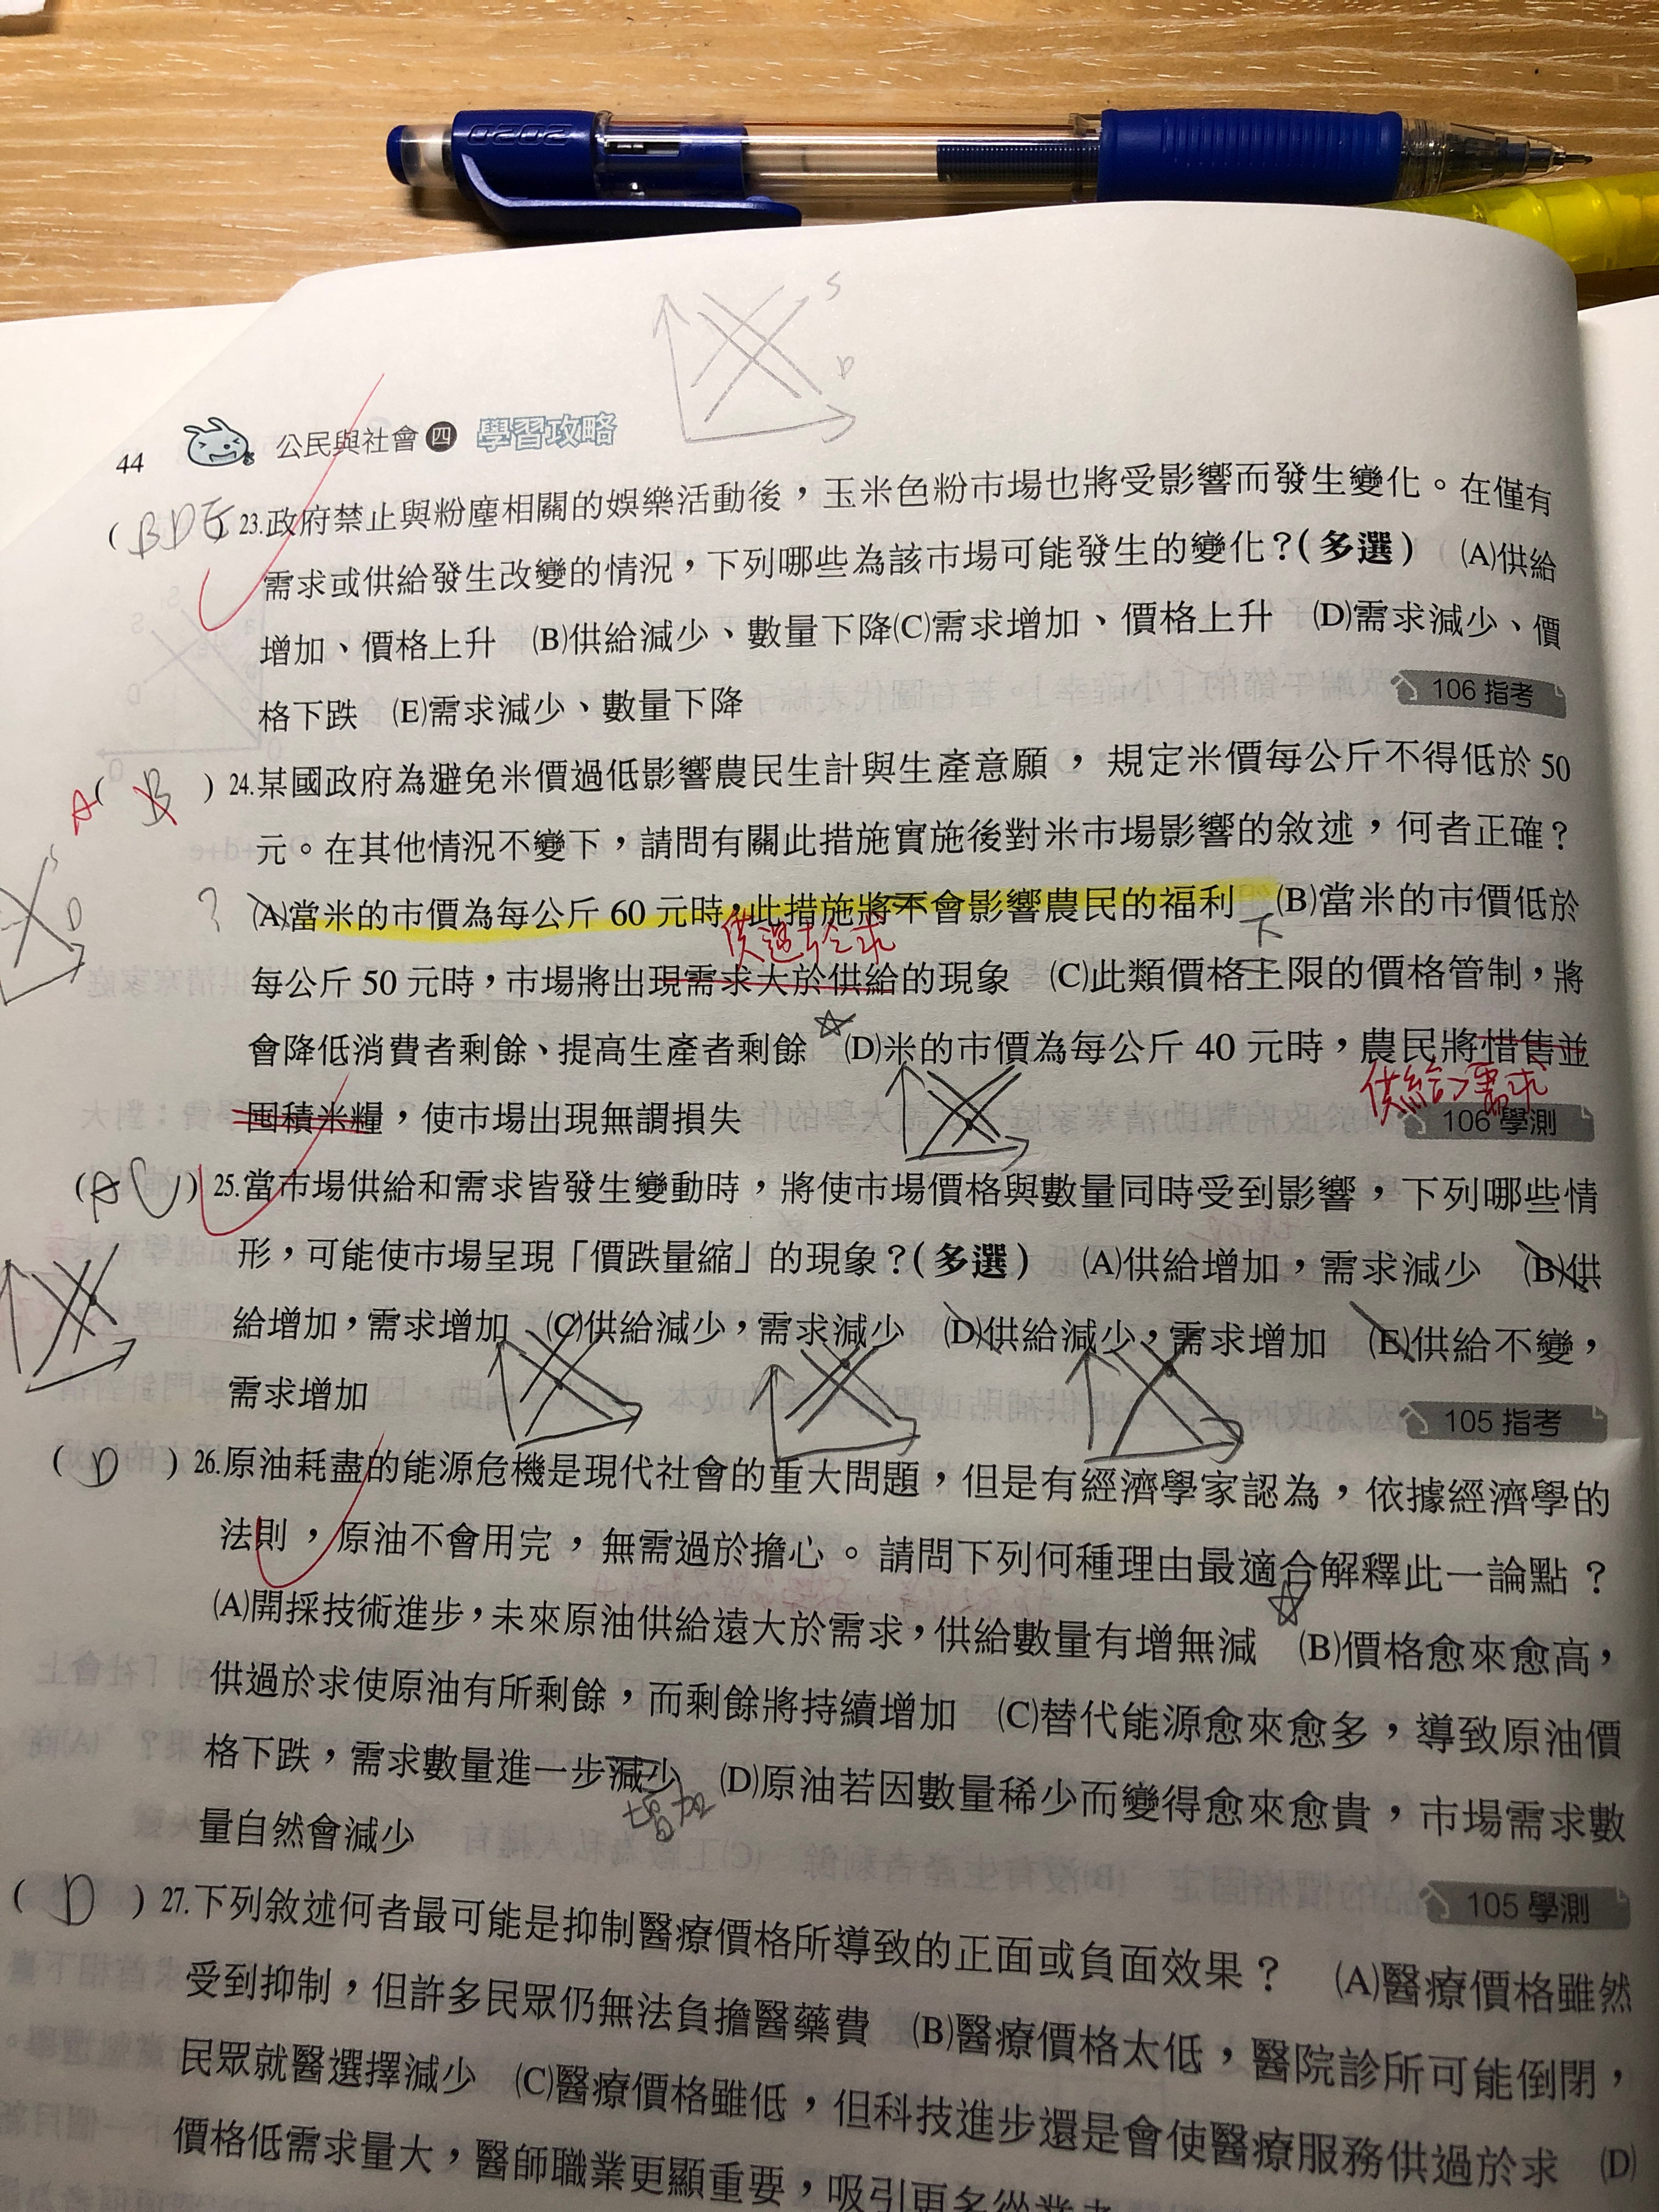 0.5 0.7
S
D
44 公民與社會 四 學習攻略
( BDE ) 23.政府禁止與粉塵相關的娛樂活動後，玉米色粉市場也將受影響而發生變化。在僅有
需求或供給發生改變的情況，下列哪些為該市場可能發生的變化？(多選) (A)供給
增加、價格上升 (B)供給減少、數量下降(C)需求增加、價格上升 (D)需求減少、價
格下跌 (E)需求減少、數量下降
106 指考
A( B ) 24.某國政府為避免米價過低影響農民生計與生產意願，規定米價每公斤不得低於 50
元。在其他情況不變下，請問有關此措施實施後對米市場影響的敘述，何者正確？
S
D
? (A)當米的市價為每公斤 60 元時，此措施將不會影響農民的福利 (B)當米的市價低於
供過於求
下
每公斤 50 元時，市場將出現需求大於供給的現象 (C)此類價格上限的價格管制，將
會降低消費者剩餘、提高生產者剩餘 ☆(D)米的市價為每公斤 40 元時，農民將惜售並
供給>需求
囤積米糧，使市場出現無謂損失
106 學測
( AC ) 25.當市場供給和需求皆發生變動時，將使市場價格與數量同時受到影響，下列哪些情
形，可能使市場呈現「價跌量縮」的現象？(多選) (A)供給增加，需求減少 (B)供
給增加，需求增加 (C)供給減少，需求減少 (D)供給減少，需求增加 (E)供給不變，
需求增加
105 指考
( D ) 26.原油耗盡的能源危機是現代社會的重大問題，但是有經濟學家認為，依據經濟學的
法則，原油不會用完，無需過於擔心。請問下列何種理由最適合解釋此一論點？
☆
(A)開採技術進步，未來原油供給遠大於需求，供給數量有增無減 (B)價格愈來愈高，
供過於求使原油有所剩餘，而剩餘將持續增加 (C)替代能源愈來愈多，導致原油價
格下跌，需求數量進一步減少 (D)原油若因數量稀少而變得愈來愈貴，市場需求數
增加
量自然會減少
105 學測
( D ) 27.下列敘述何者最可能是抑制醫療價格所導致的正面或負面效果？ (A)醫療價格雖然
受到抑制，但許多民眾仍無法負擔醫藥費 (B)醫療價格太低，醫院診所可能倒閉，
民眾就醫選擇減少 (C)醫療價格雖低，但科技進步還是會使醫療服務供過於求 (D)
價格低需求量大，醫師職業更顯重要，吸引更多從業者